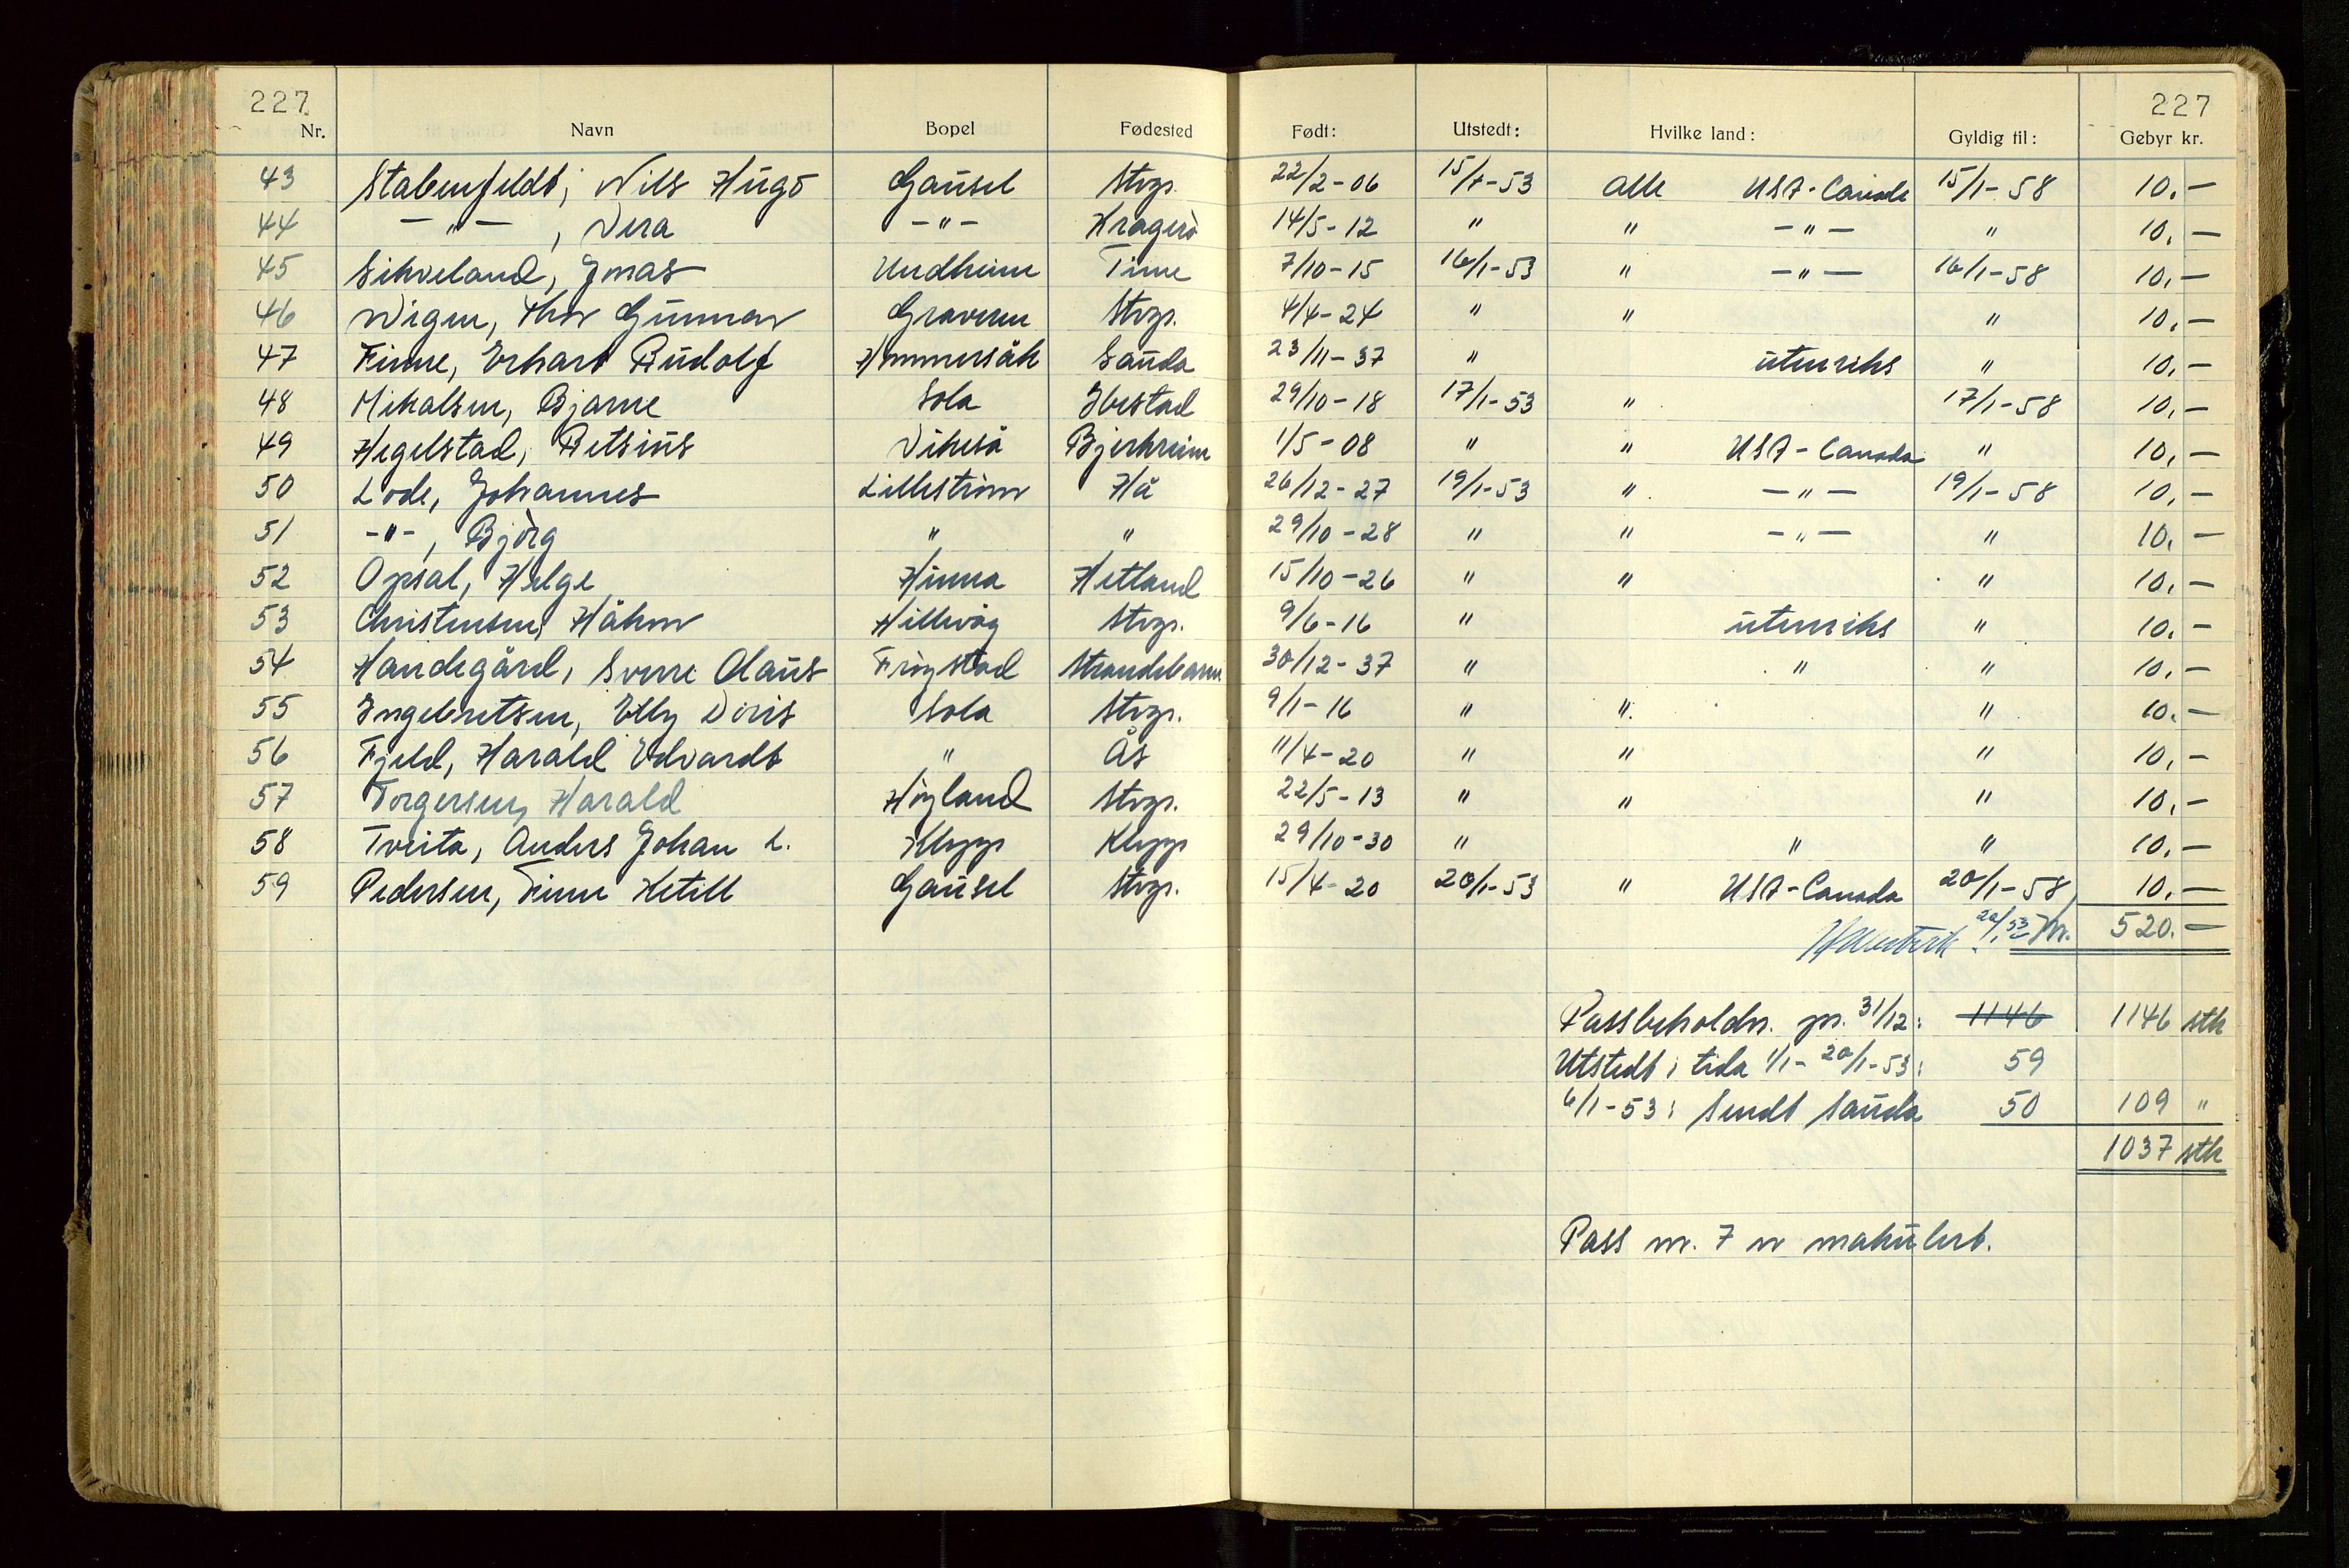 227 227
Nr. Navn Bopel Fødested Født: Utstedt: Hvilke land: Gyldig til: Gebyr kr.
43 Stabenfeldt, Nils Hugo Gausel Stvgr. 22/2-06 15/1-53 alle USA-Canada 15/1-58 10.-
44 -"-, Vera -"- Kragerö 14/5-12 " " -"- " 10.-
45 Sikveland, Jonas Undheim Time 7/10-15 16/1-53 " -"- 16/1-58 10.-
46 Wigen, Thor Gunnar Graveren Stvgr. 4/4-24 " " " 10.-
47 Finne, Erhart Rudolf Hommersåk Sauda 23/11-37 " utenriks " 10.-
48 Mikalsen, Bjarne Sola Ibestad 29/10-18 17/1-53 " 17/1-58 10.-
49 Hegelstad, Retsius Vikeså Bjerkreim 1/5-08 " " USA-Canada " 10.-
50 Lode, Johannes Lilleström Hå 26/12-27 19/1-53 " -"- 19/1-58 10.-
51 -"-, Björg " " 29/10-28 " " -"- " 10.-
52 Opsal, Helge Hinna Hetland 15/10-26 " " " 10.-
53 Christensen, Håkon Hillevåg Stvgr. 9/6-16 " utenriks " 10.-
54 Handegård, Sverre Olaus Fröystad Strandebarm 30/12-37 " " " 10.-
55 Engebretsen, Elly Doris Sola Stvgr. 9/1-16 " " " 10.-
56 Fjeld, Harald Edvardt " Ås 11/4-20 " " " 10.-
57 Torgersen, Harald Höyland Stvgr. 22/5-13 " " " 10.-
58 Tveita, Anders Johan L. Klepp Klepp 29/10-30 " " " 10.-
59 Pedersen, Finn Ketill Gausel Stvgr. 15/4-20 20/1-53 " USA-Canada 20/1-58 10.-
20/1 53 520.-
Passbeholdn. pr. 31/12: 1146 1146 stk
Utstedt i tida 1/1-20/1-53: 59
6/1-53: Sendt Sauda 50 109 "
1037 stk
Pass nr. 7 er makulert.